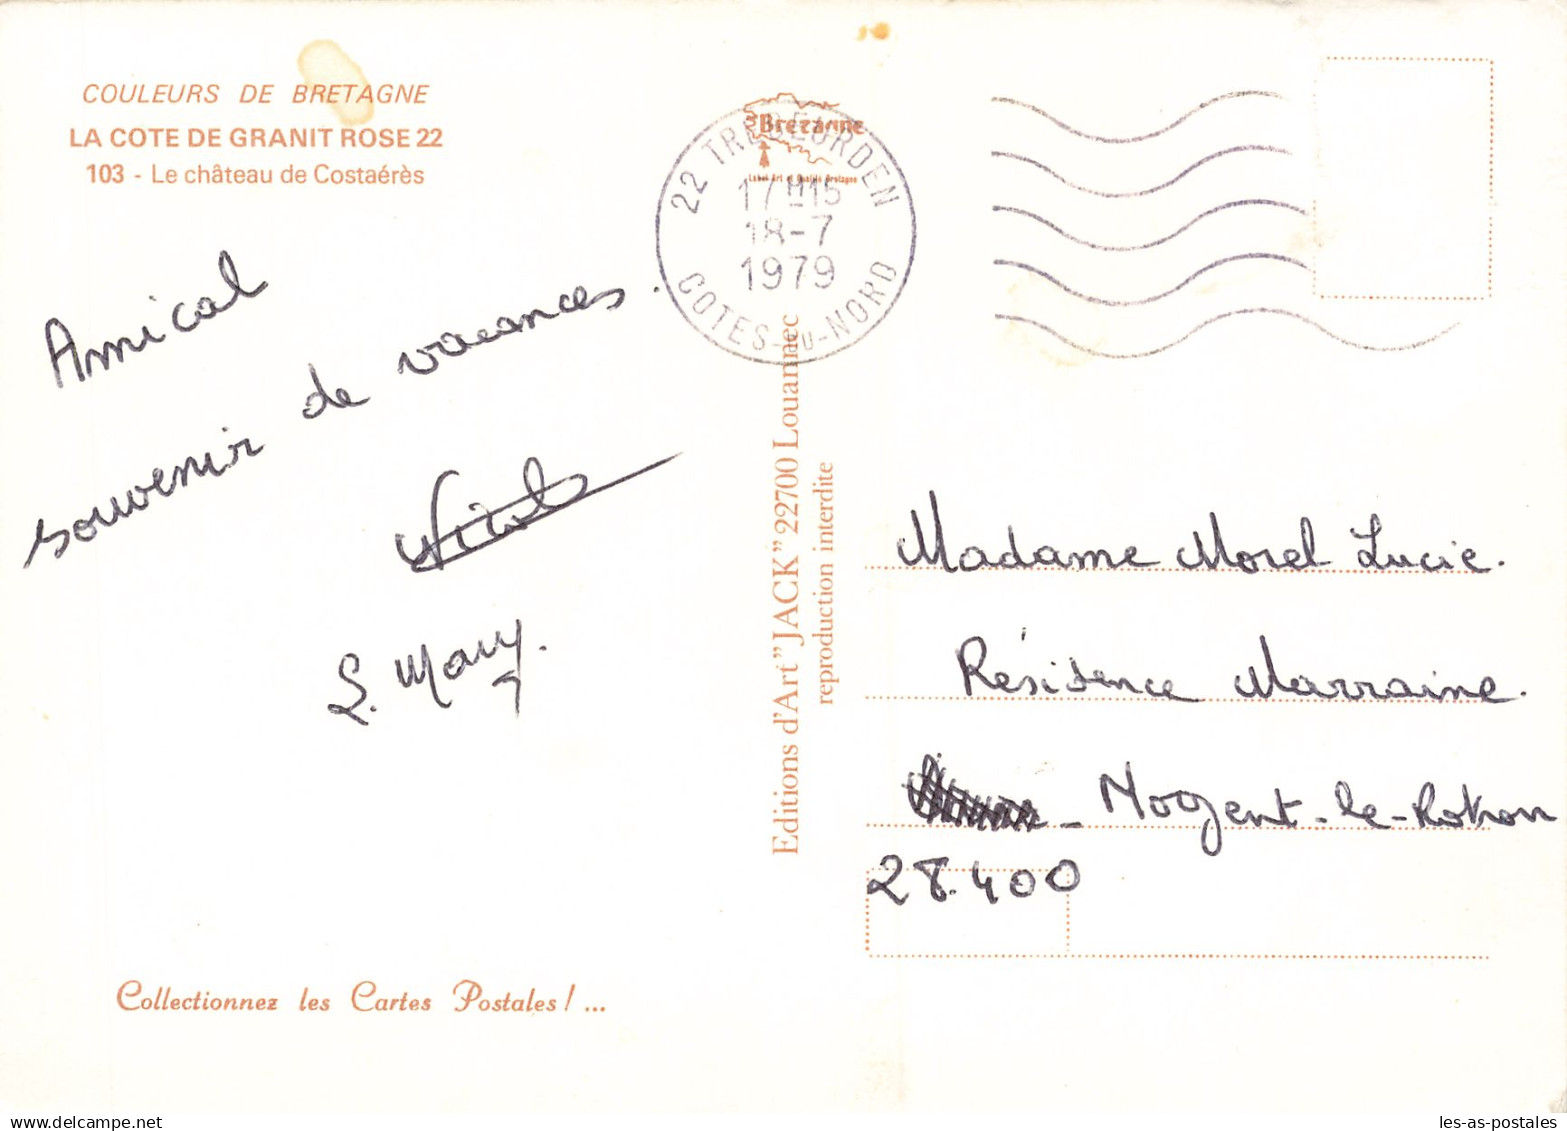 COULEURS DE BRETAGNE
LA COTE DE GRANIT ROSE 22
103 - Le château de Costaérès
Bretagne
Label Art et Qualité Bretagne
22 TREBEURDEN
17H15
18-7
1979
COTES-DU-NORD
Amical
souvenir de vacances.
Nicole
L. Mary.
Editions d'Art "JACK" 22700 Louannec
reproduction interdite
Madame Morel Lucie.
Résidence Marraine.
- Nogent-le-Rotrou
28.400
Collectionnez les Cartes Postales ! ...
les-as-postales